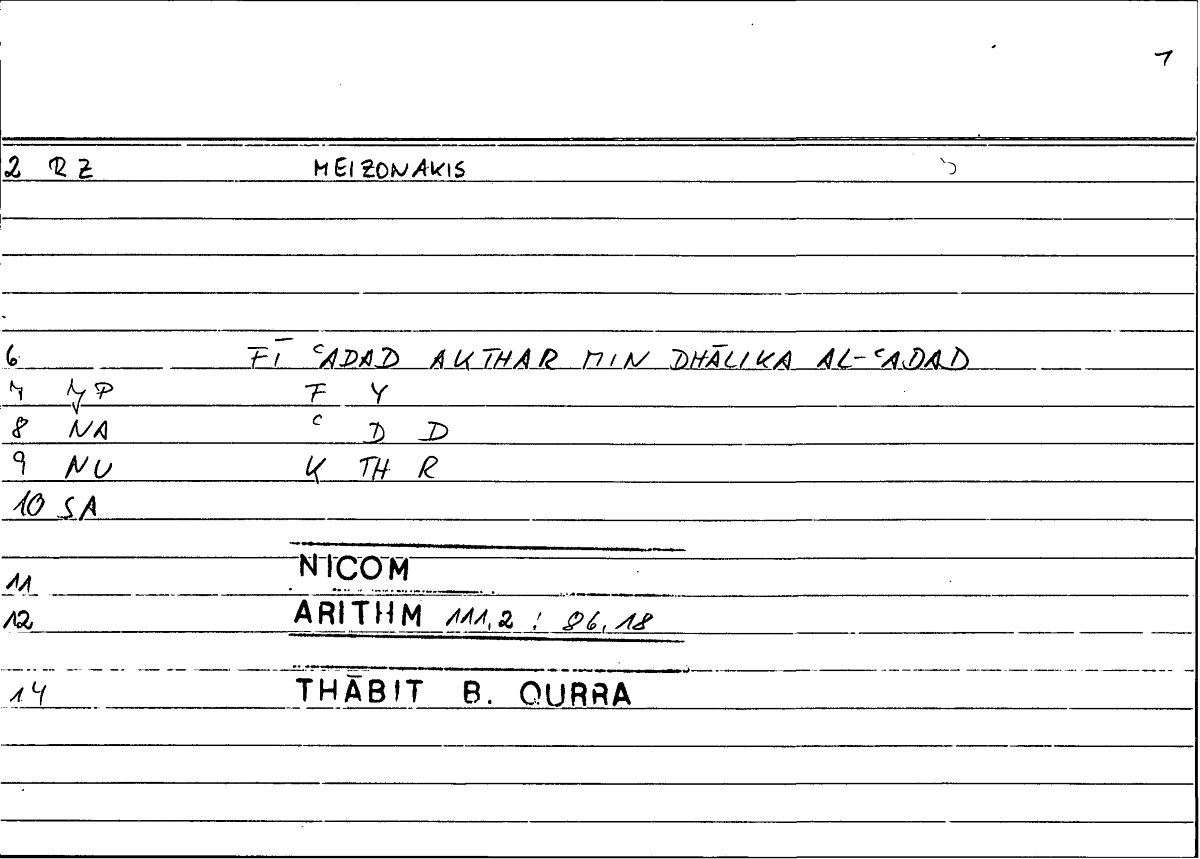 1
2 RZ MEIZONAKIS
6 FĪ ʿADAD AKTHAR MIN DHĀLIKA AL-ʿADAD
7 YP F Y
8 NA ʿ D D
9 NU K TH R
10 SA
11 NICOM
12 ARITHM 111,2 : 86,18
14 THĀBIT B. QURRA